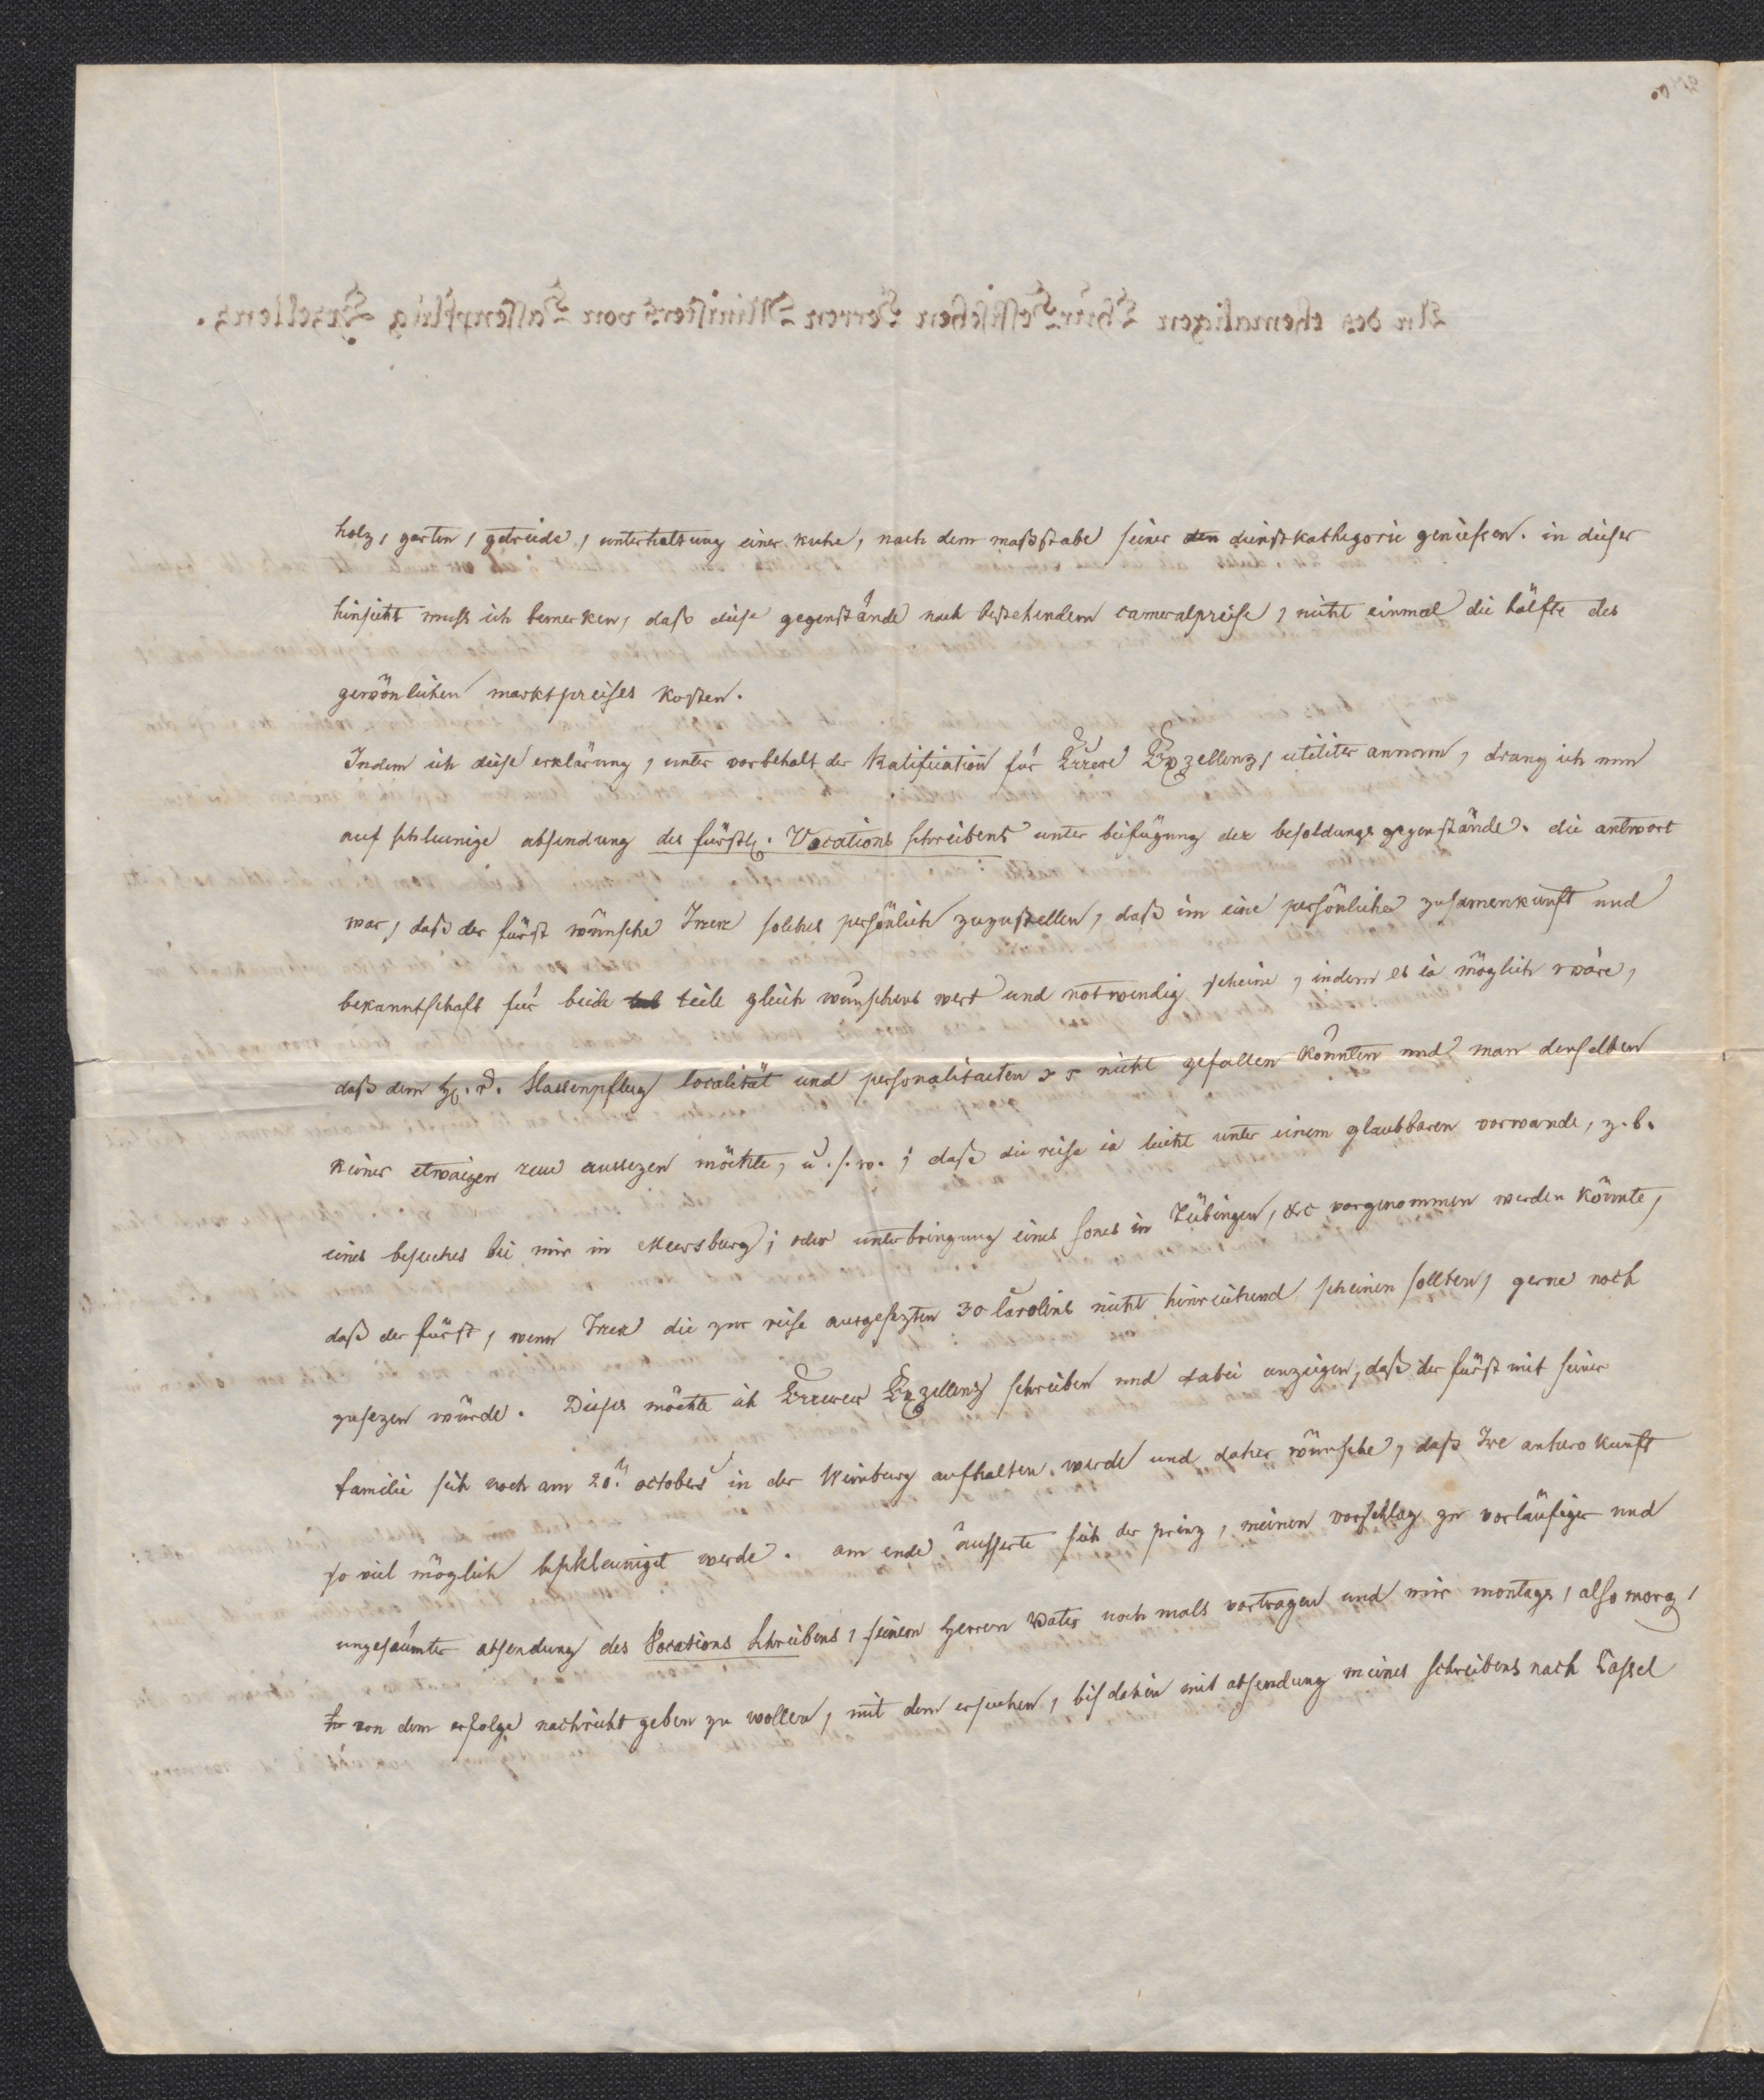 holz, garten, getreide, unterhaltung einer kuhe, nach dem maßstabe seiner den dienstkathegorie geniessen. in dieser
hinsicht muss ich bemerken, daß diese gegenstände nach bestehendem cameralpreise, nicht einmal die hälfte des
gewönlichen marktpreises kosten.
Indem ich diese erklärung, unter vorbehalt der Ratification für Euere Exzellenz, utiliter annam, drang ich nun
auf schleunige absendung des fürstl. Vocations schreibens unter beifügung der besoldungs gegenstände. die antwort
war, daß der fürst wünsche Inen solches persönlich zuzustellen, daß im eine persönliche zusamenkunft und
bekanntschaft für beide teile gleich wünschens wert und notwendig scheine, indem es ia möglich wäre,
daß dem H. v. Hassenpflug localität und personalitaeten nicht gefallen könnten und man denselben
keiner etwaigen reue aussezen möchte, u. s. w.; daß die reise ia leicht unter einem glaubbaren vorwande, z. b.
eines besuches bei mir in Meersburg; oder unterbringung eines sones in Tübingen, &c vorgenommen werden könnte,
daß der fürst, wenn Inen die zur reise ausgesezten 30 Carolins nicht hinreichend scheinen sollten, gerne noch
zusezen würde. Dieses möchte ich Euerer Exzellenz schreiben und dabei anzeigen, daß der fürst mit seiner
familie sich noch am 20n october in der Weinburg aufhalten werde und daher wünsche, daß Ire anhero kunft
so viel möglich beschleuniget werde. am ende äusserte sich der prinz, meinen vorschlag zu vorläufiger und
ungesäumter absendung des Vocations Schreibens, seinem Herren Vater noch mals vortragen und mir montags, also morg,
von dem erfolge nachricht geben zu wollen, mit dem ersuchen, bis dahin mit absendung meines schreibens nach Cassel